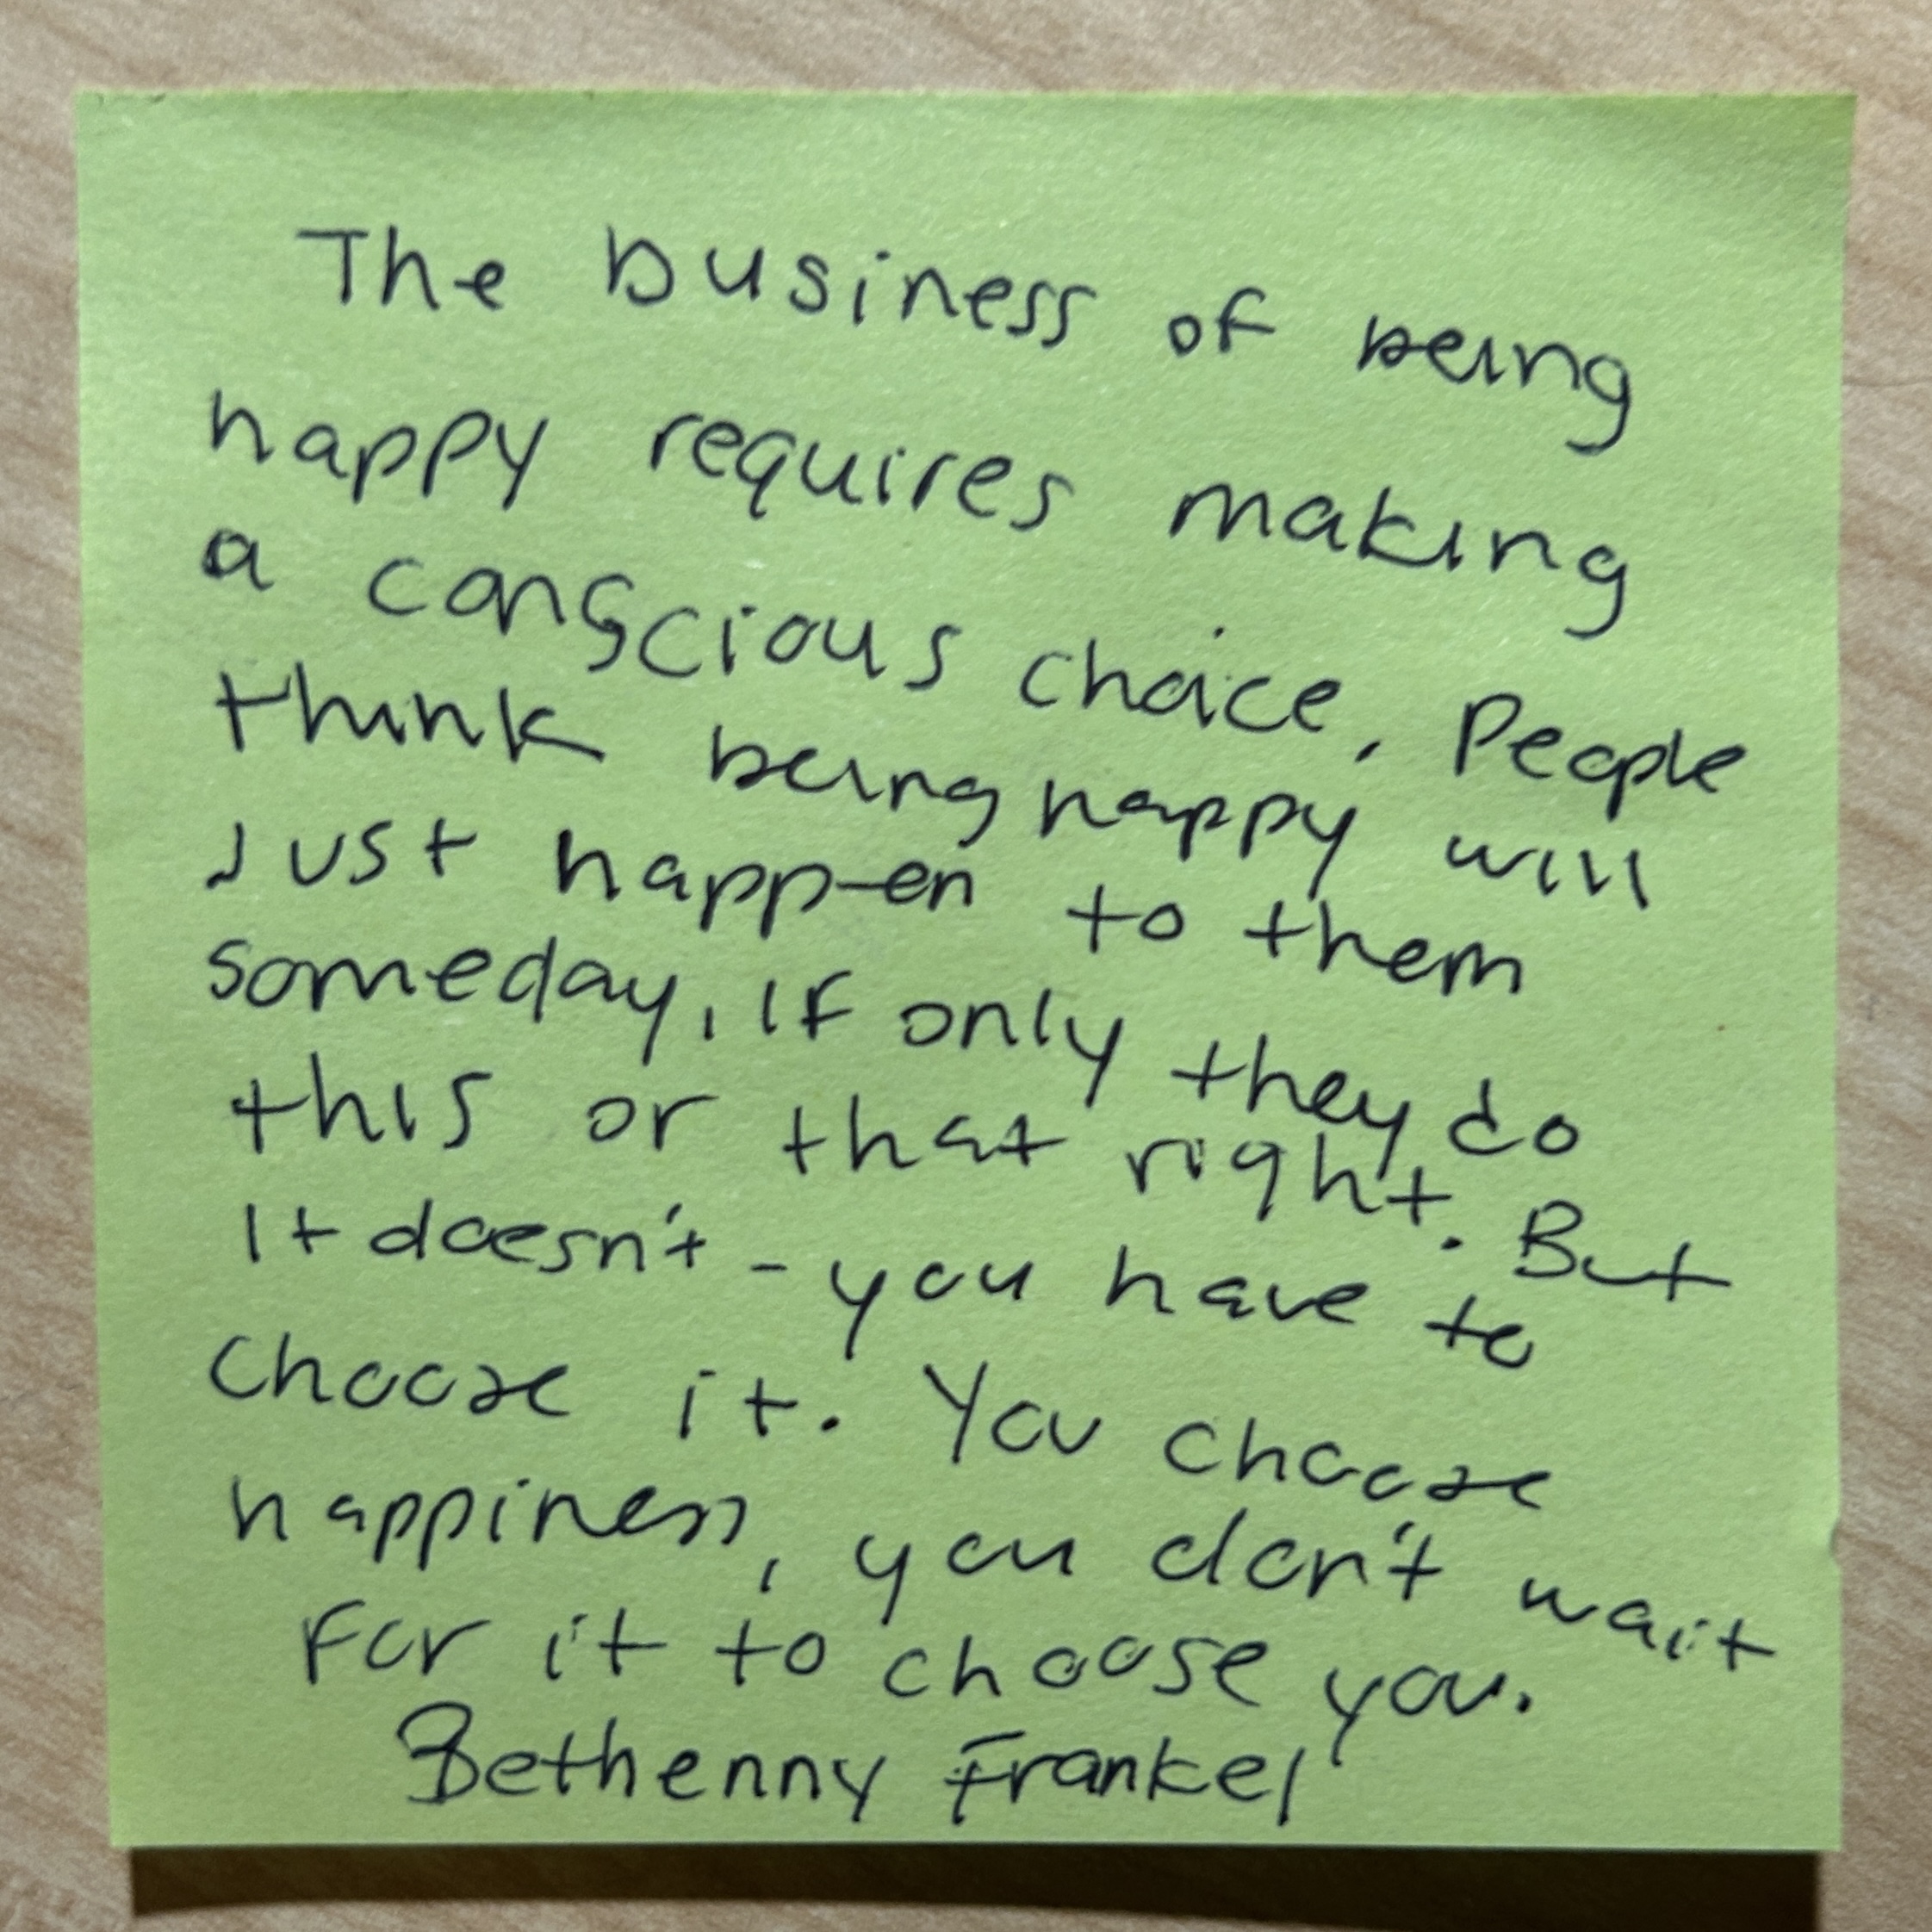 The business of being
happy requires making
a conscious choice. People
think being happy will
Just happen to them
someday, if only they do
this or that right. But
it doesn't - you have to
choose it. You choose
happiness, you don't wait
for it to choose you.
Bethenny Frankel